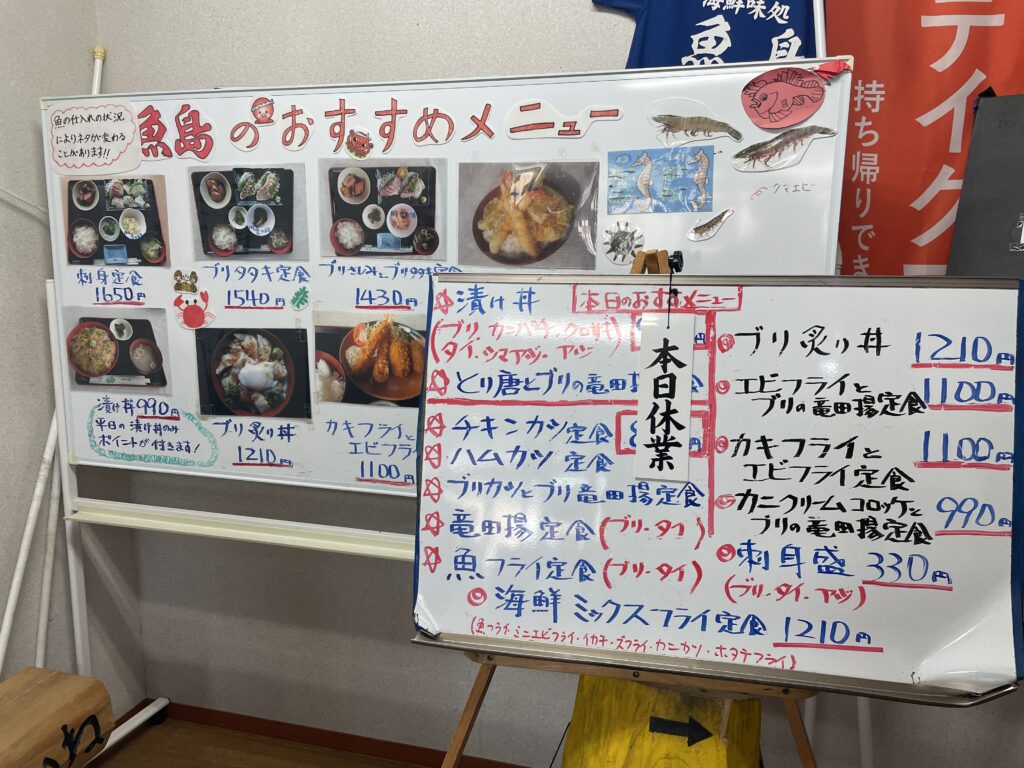 海鮮味処
魚島
テイク
持ち帰りでき
魚の仕入れの状況
によりネタが変わる
ことがあります!!
魚島のおすすめメニュー
クマエビ
刺身定食
1650円
ブリタタキ定食
1540円
ブリさしみとブリタタキ定食
1430円
漬け丼990円
平日の漬け丼のみ
ポイントが付きます!
ブリ炙り丼
1210円
カキフライと
エビフライ
1100円
本日のおすすめメニュー
漬け丼
(ブリ・カンパチ
タイ・シマアジ・アジ)
円
とり唐とブリの竜田揚
チキンカツ定食
ハムカツ定食
ブリカツとブリ竜田揚定食
竜田揚定食(ブリ・タイ)
魚フライ定食(ブリ・タイ)
海鮮ミックスフライ定食 1210円
(魚フライ・ミニエビフライ・イカチーズフライ・カニカツ・ホタテフライ)
本日休業
ブリ炙り丼 1210円
エビフライと
ブリの竜田揚定食 1100円
カキフライと
エビフライ定食 1100円
カニクリームコロッケと
ブリの竜田揚定食 990円
刺身盛 330円
(ブリ・タイ・アジ)